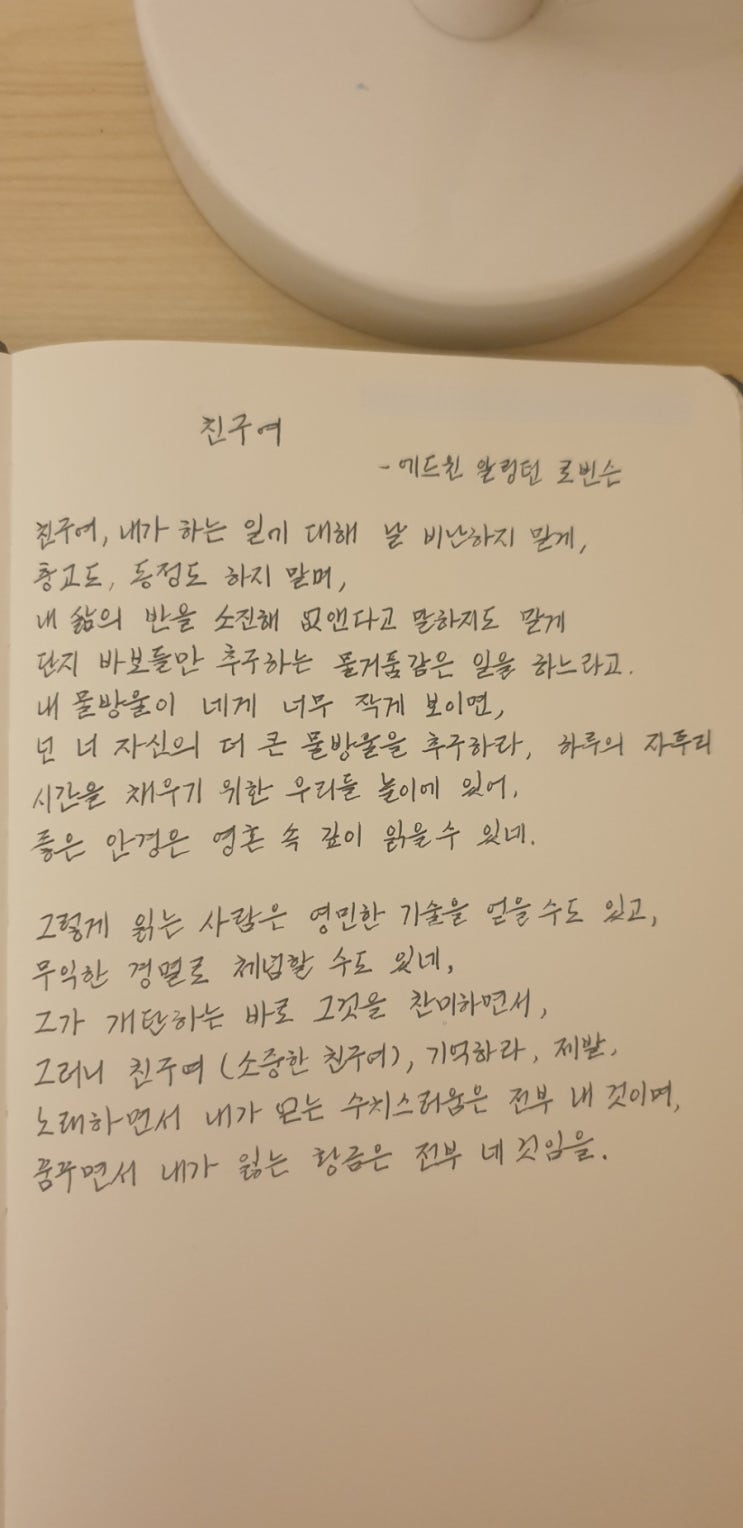 친구여
- 에드윈 알링턴 로빈슨
친구여, 내가 하는 일에 대해 날 비난하지 말게,
충고도, 동정도 하지 말며,
내 삶의 반을 소진해 없앤다고 말하지도 말게
단지 바보들만 추구하는 물거품같은 일을 하느라고.
내 물방울이 네게 너무 작게 보이면,
넌 너 자신의 더 큰 물방울을 추구하라, 하루의 자투리
시간을 채우기 위한 우리들 놀이에 있어,
좋은 안경은 영혼 속 깊이 읽을 수 있네.
그렇게 읽는 사람은 영민한 기술을 얻을 수도 있고,
무익한 경멸로 체념할 수도 있네,
그가 개탄하는 바로 그것을 찬미하면서,
그러니 친구여 (소중한 친구여), 기억하라, 제발,
노래하면서 내가 얻는 수치스러움은 전부 내 것이며,
꿈꾸면서 내가 잃는 황금은 전부 네 것임을.